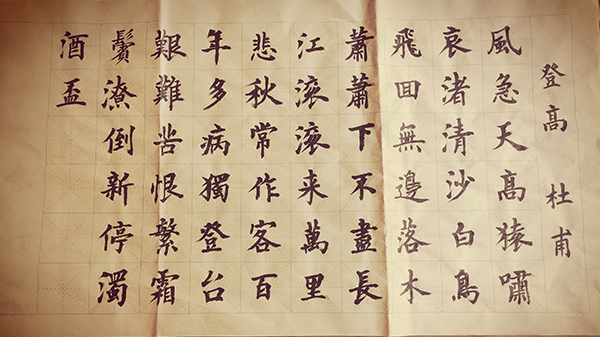 登高 杜甫
風急天高猿嘯
哀渚清沙白鳥
飛回無邊落木
蕭蕭下不盡長
江滾滾来萬里
悲秋常作客百
年多病獨登台
艱難苦恨繁霜
鬢潦倒新停濁
酒盃